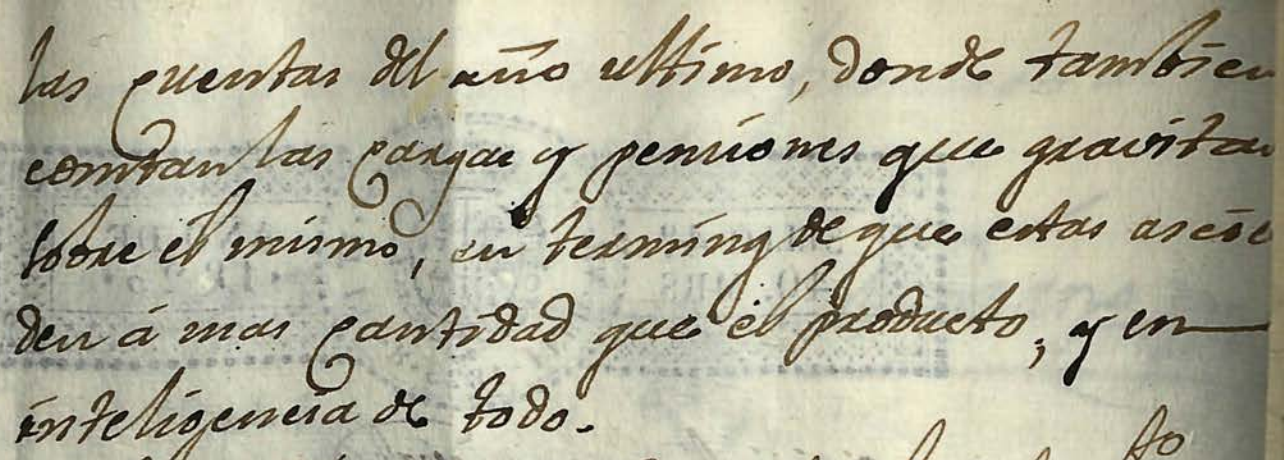 las cuentas del año ultimo, donde tambien
constan las cargas y pensiones que gravitan
sobre él mismo, en terminos de que estas ascie
den á mas cantidad que el producto, y en
inteligencia de todo.